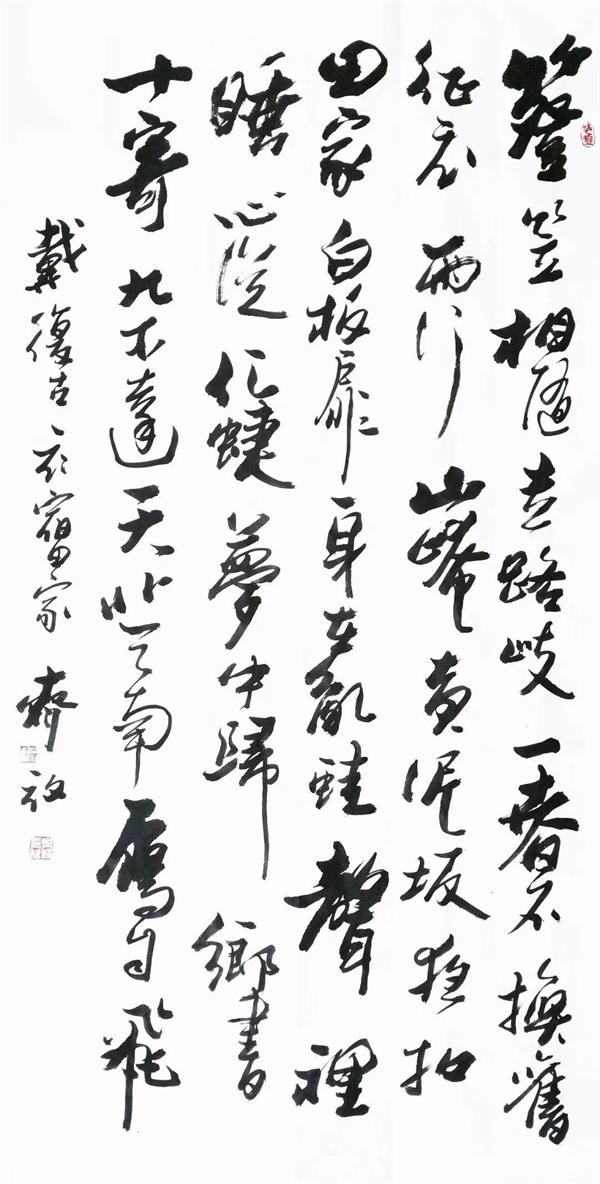 簦笠相隨走路岐一春不換舊
征衣雨行山崦黃泥坂夜扣
田家白板扉身在亂蛙聲裡
睡心從化蝶夢中歸鄉書
十寄九不達天北天南雁自飛
戴復古夜宿田家 齊